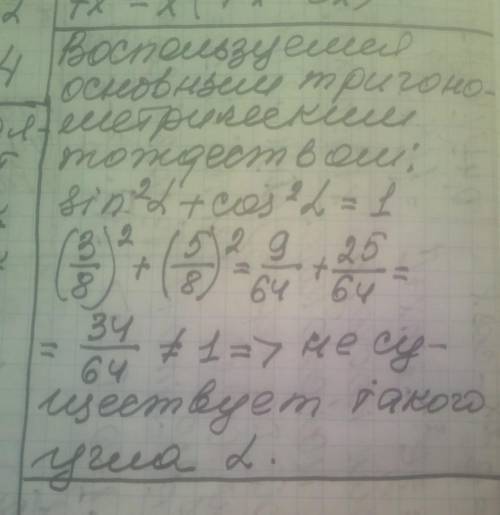 Воспользуемся
основным тригоно-
метрическим
тождеством:
sin²α + cos²α = 1
(3/8)² + (5/8)² = 9/64 + 25/64 =
= 34/64 ≠ 1 => не су-
ществует такого
угла α.